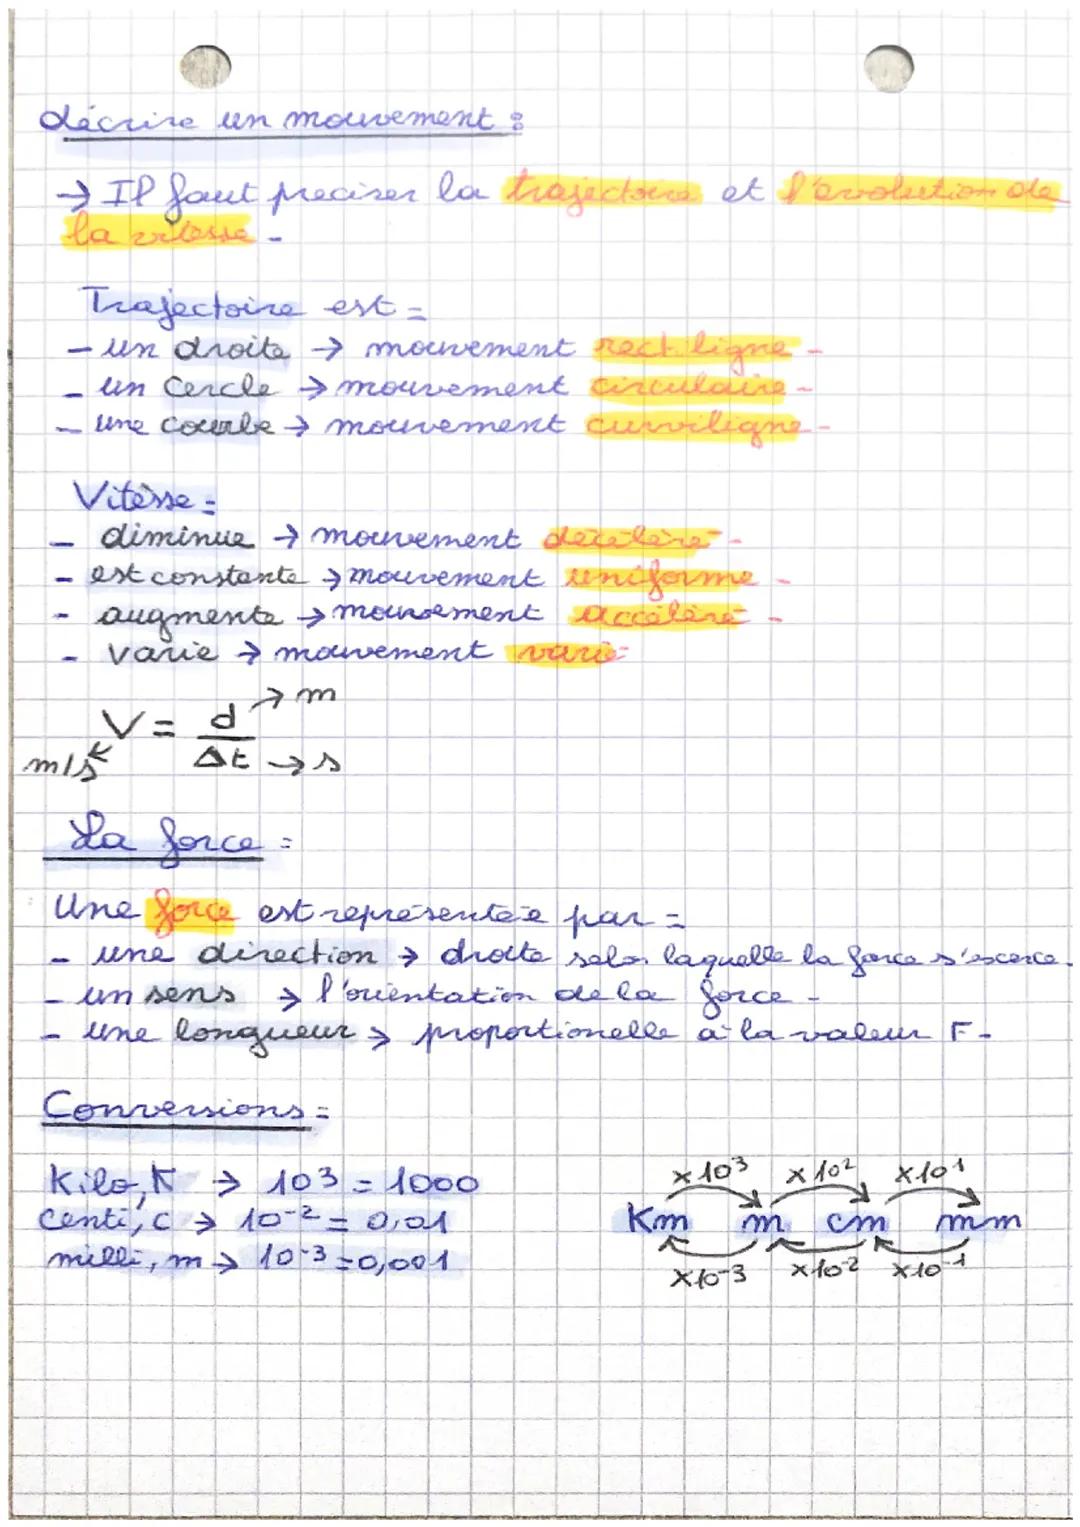 décrire un mouvement :
→ Il faut preciser la trajectoire et l'évolution de
la vitesse -
Trajectoire est =
- un droite → mouvement rectiligne -
- un cercle → mouvement circulaire -
- une courbe → mouvement curviligne -
Vitesse =
- diminue → mouvement décéléré -
- est constante → mouvement uniforme -
- augmente → mouvement accéléré -
- varie → mouvement varié -
V = d/Δt
→ m
m/s
→ s
La force =
Une force est représentée par =
- une direction → droite selon laquelle la force s'exerce.
- un sens → l'orientation de la force -
- une longueur → proportionelle à la valeur F -
Conversions =
Kilo, K → 10³ = 1000
centi, c → 10-² = 0,01
milli, m → 10-3 = 0,001
×10³ ×10² ×10¹
Km m cm mm
×10-3 ×10-2 ×10-1